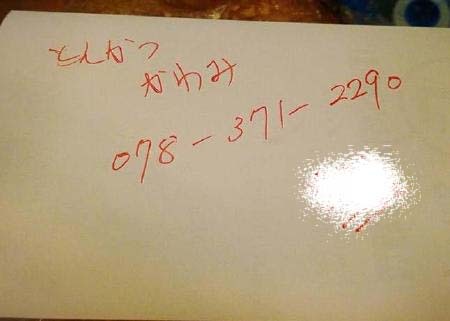 とんかつ
かわみ
078-371-2290